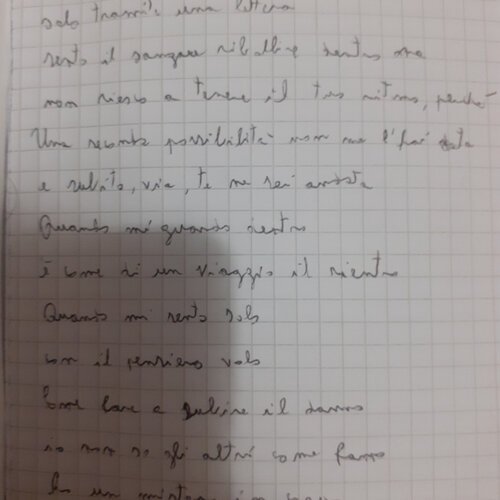 solo tramite una lettera
sento il sangue ribollire dentro ma
non riesco a tenere il tuo ritmo, perché
Una seconda possibilità non me l'hai data
e subito, via, te ne sei andata
Quando mi guardo dentro
è come di un viaggio il rientro
Quando mi sento solo
con il pensiero volo
Come fare a subire il danno
io non so gli altri come fanno
un